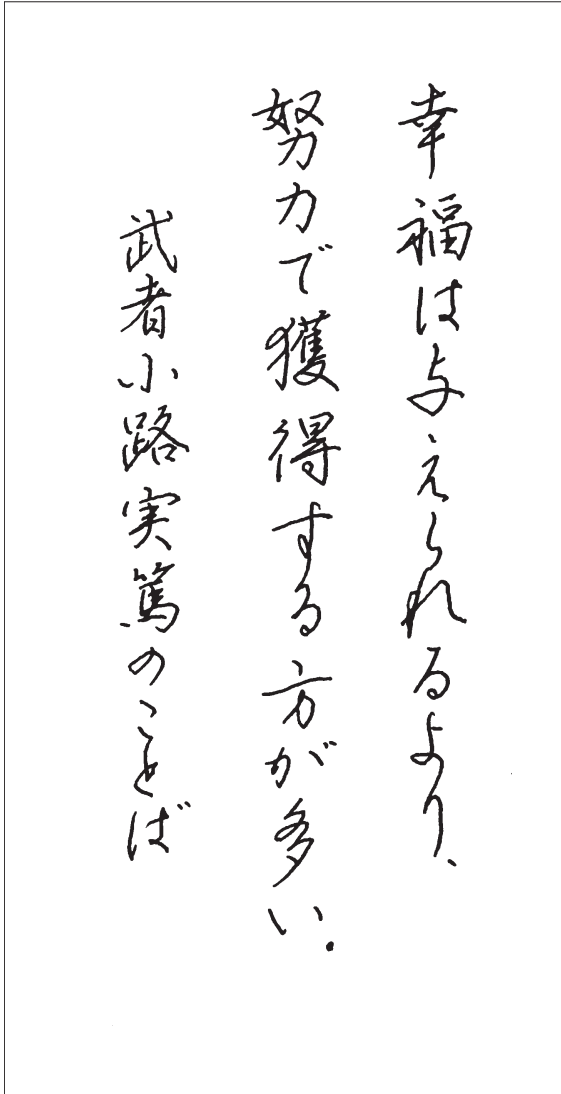 幸福は与えられるより、
努力で獲得する方が多い。
武者小路実篤のことば